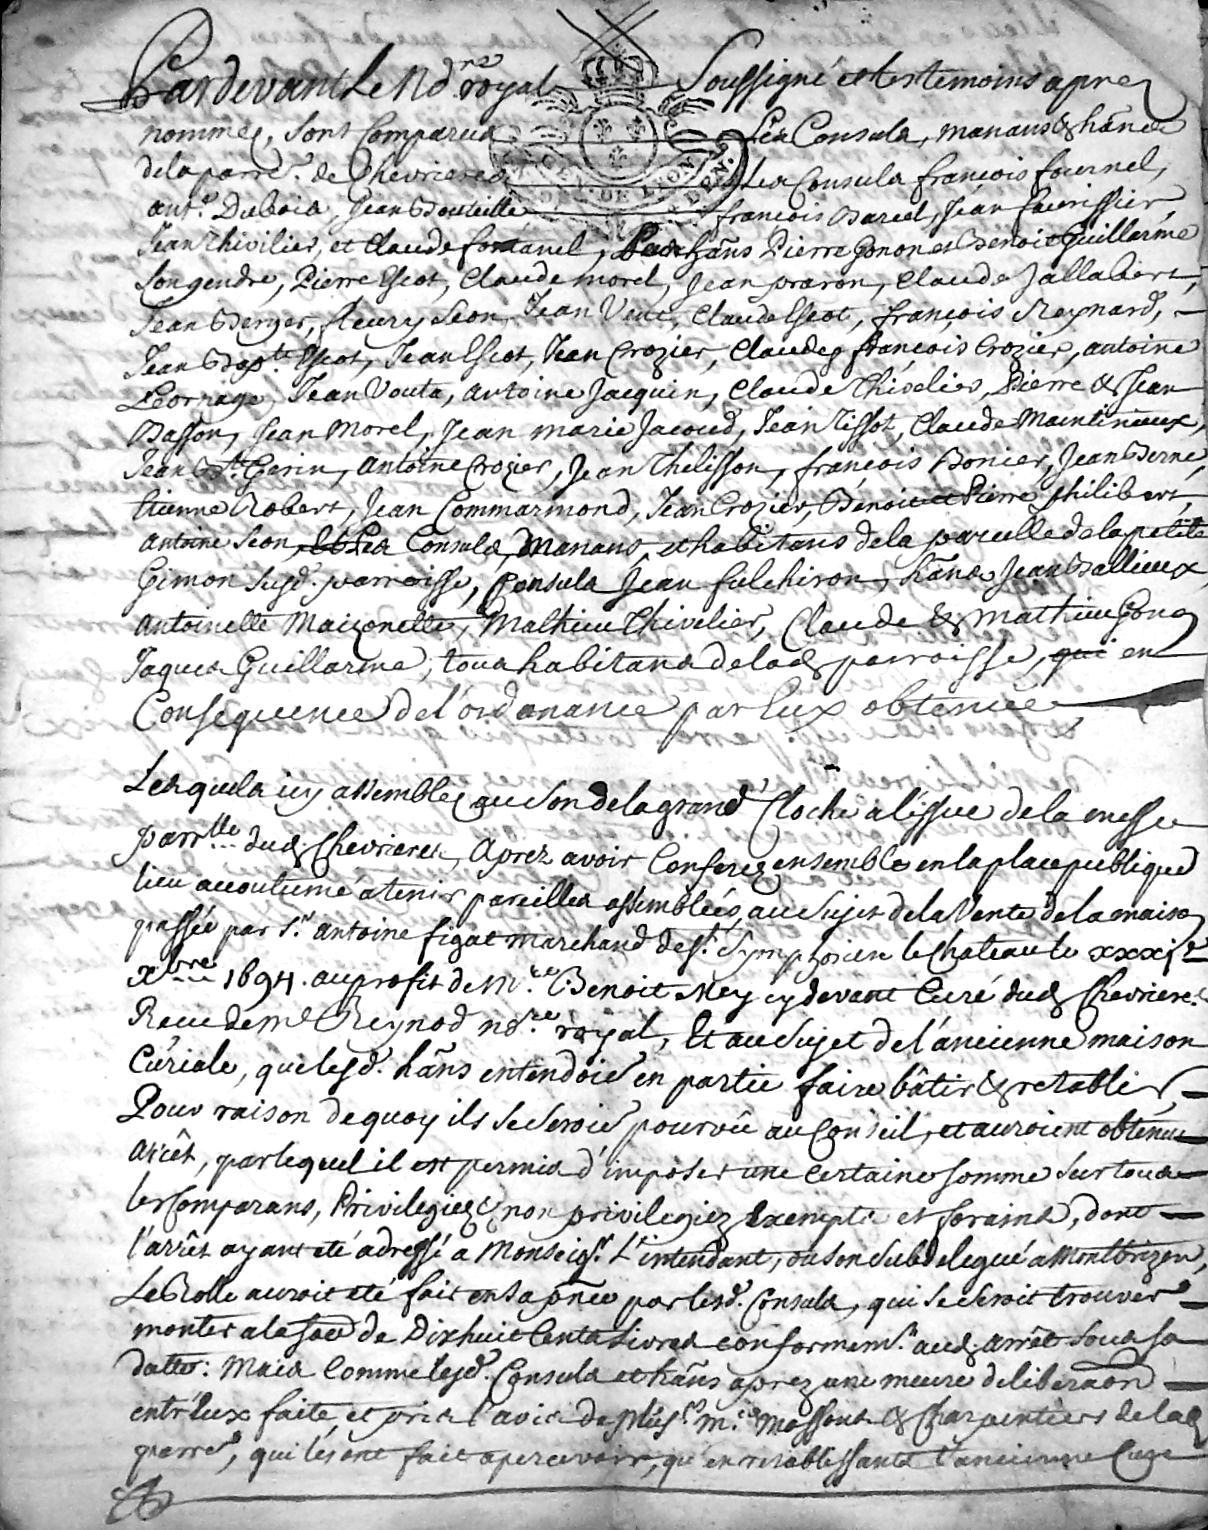 Pardevant Le No.re royal Soussigné et les temoins apres
nommes, sont Comparus Les Consuls, manans & hans
de la parre. de Chevrieres Les Consuls françois fournel,
ant.e Dubois, Jean Bouteille françois Barcel, Jean
Jean Thivilier, et Claude fontanel, hans Pierre Gonon et Benoit Guillarme
Son gendre, Pierre Escot, Claude morel, Jean praron, Claude Jallabert,
Jean Berger, fleury Seon, Jean Claude Escot, françois Reynard,
Jean Bap.te Escot, Jean Escot, Jean Crozier, Claude & françois Crozier, antoine
Jean Vouta, antoine Jacquin, Claude Thivelier, Pierre & Jean
Basson, Jean Morel, Jean marie Jacoud, Jean Tissot, Claude Maintineux,
Jean B.te Gerin, antoine Crozier, Jean Thelisson, françois Bonier, Jean Berne,
tienne Robert, Jean Commarmond, Jean Crozier, Benoit et Pierre philibert,
antoine Seon, Les Consuls, Manans, et habitans de la parcelle de la petite
Gimon susd. parroisse, Consuls Jean fulchiron, hans Jean Ballieux
antoinette Maizonette, Mathieu Thivelier, Claude & mathieu Gonon
Jaques Guillarme, tous habitans de lad. parroisse, qui en
Consequence de l'ordonance par Eux obtenue
Lesquels icy assemblez au son de la grand' Cloche a l'issue de la messe
parr.lle dud. Chevrieres, Aprez avoir Conferez ensemble en la place publique
lieu accoutumé a tenir pareilles assemblées, au sujet de la Vente de la maison
passée par S.r antoine figat marchand de S.t Symphorien le Chateau le xxxj.e
x.bre 1694. au profit de M.re Benoit Ney cy devant Curé dud. Chevrieres
Receu de m.e Reynod no.re royal, Et au sujet de l'ancienne maison
Curiale, que lesd. hans entendoie en partie faire bâtir & retablir,
Pour raison de quoy ils se seroie pourvû au Conseil, et auroient obtenu
arrêt, par lequel il est permis d'imposer une certaine somme sur tous
les comparans, Privilegiez & non privilegiez Exempts et forains, dont
l'arrêt ayant eté adressé a Monseig.r L'intendant, ou son Subdelegué a Montbrizon,
Le Rolle auroit eté fait en sa pnce par lesd. Consuls, qui se seroit trouver
monter a la sôe de Dixhuit Cents Livres conformem.t aud. arrêt sous sa
datte: Mais Comme lesd. Consuls et hans aprez une meure deliberaôn
entr'Eux faite et pris l'avis de plus.rs M.es Massons & Charpentiers de lad.
parre, qui les ont fait apercevoir, qu'en retablissant l'ancienne Cure